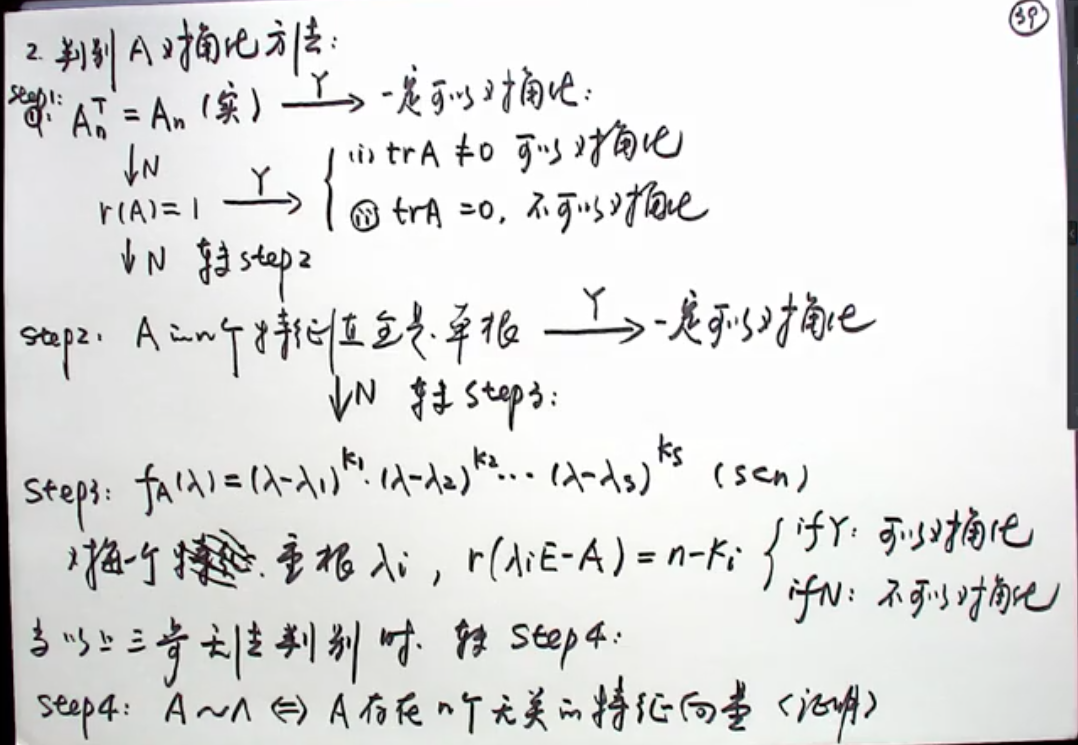 39
2. 判别 A 对角化方法:
step1:
①: Aₙᵀ = Aₙ (实) —Y→ 一定可以对角化:
↓N (i) trA ≠ 0 可以对角化
r(A) = 1 —Y→ {
(ii) trA = 0, 不可以对角化
↓N 转 step2
step2: A 的 n个特征值全是单根 —Y→ 一定可以对角化
↓N 转 step3:
step3: f_A(λ) = (λ-λ₁)^k₁ · (λ-λ₂)^k₂ ··· (λ-λₛ)^kₛ (s<n)
对每一个 重根 λi, r(λiE-A) = n-ki { if Y: 可以对角化
if N: 不可以对角化
当以上三步无法判别时. 转 step4:
step4: A ~ Λ ⇔ A 存在 n个无关的特征向量 (证明)